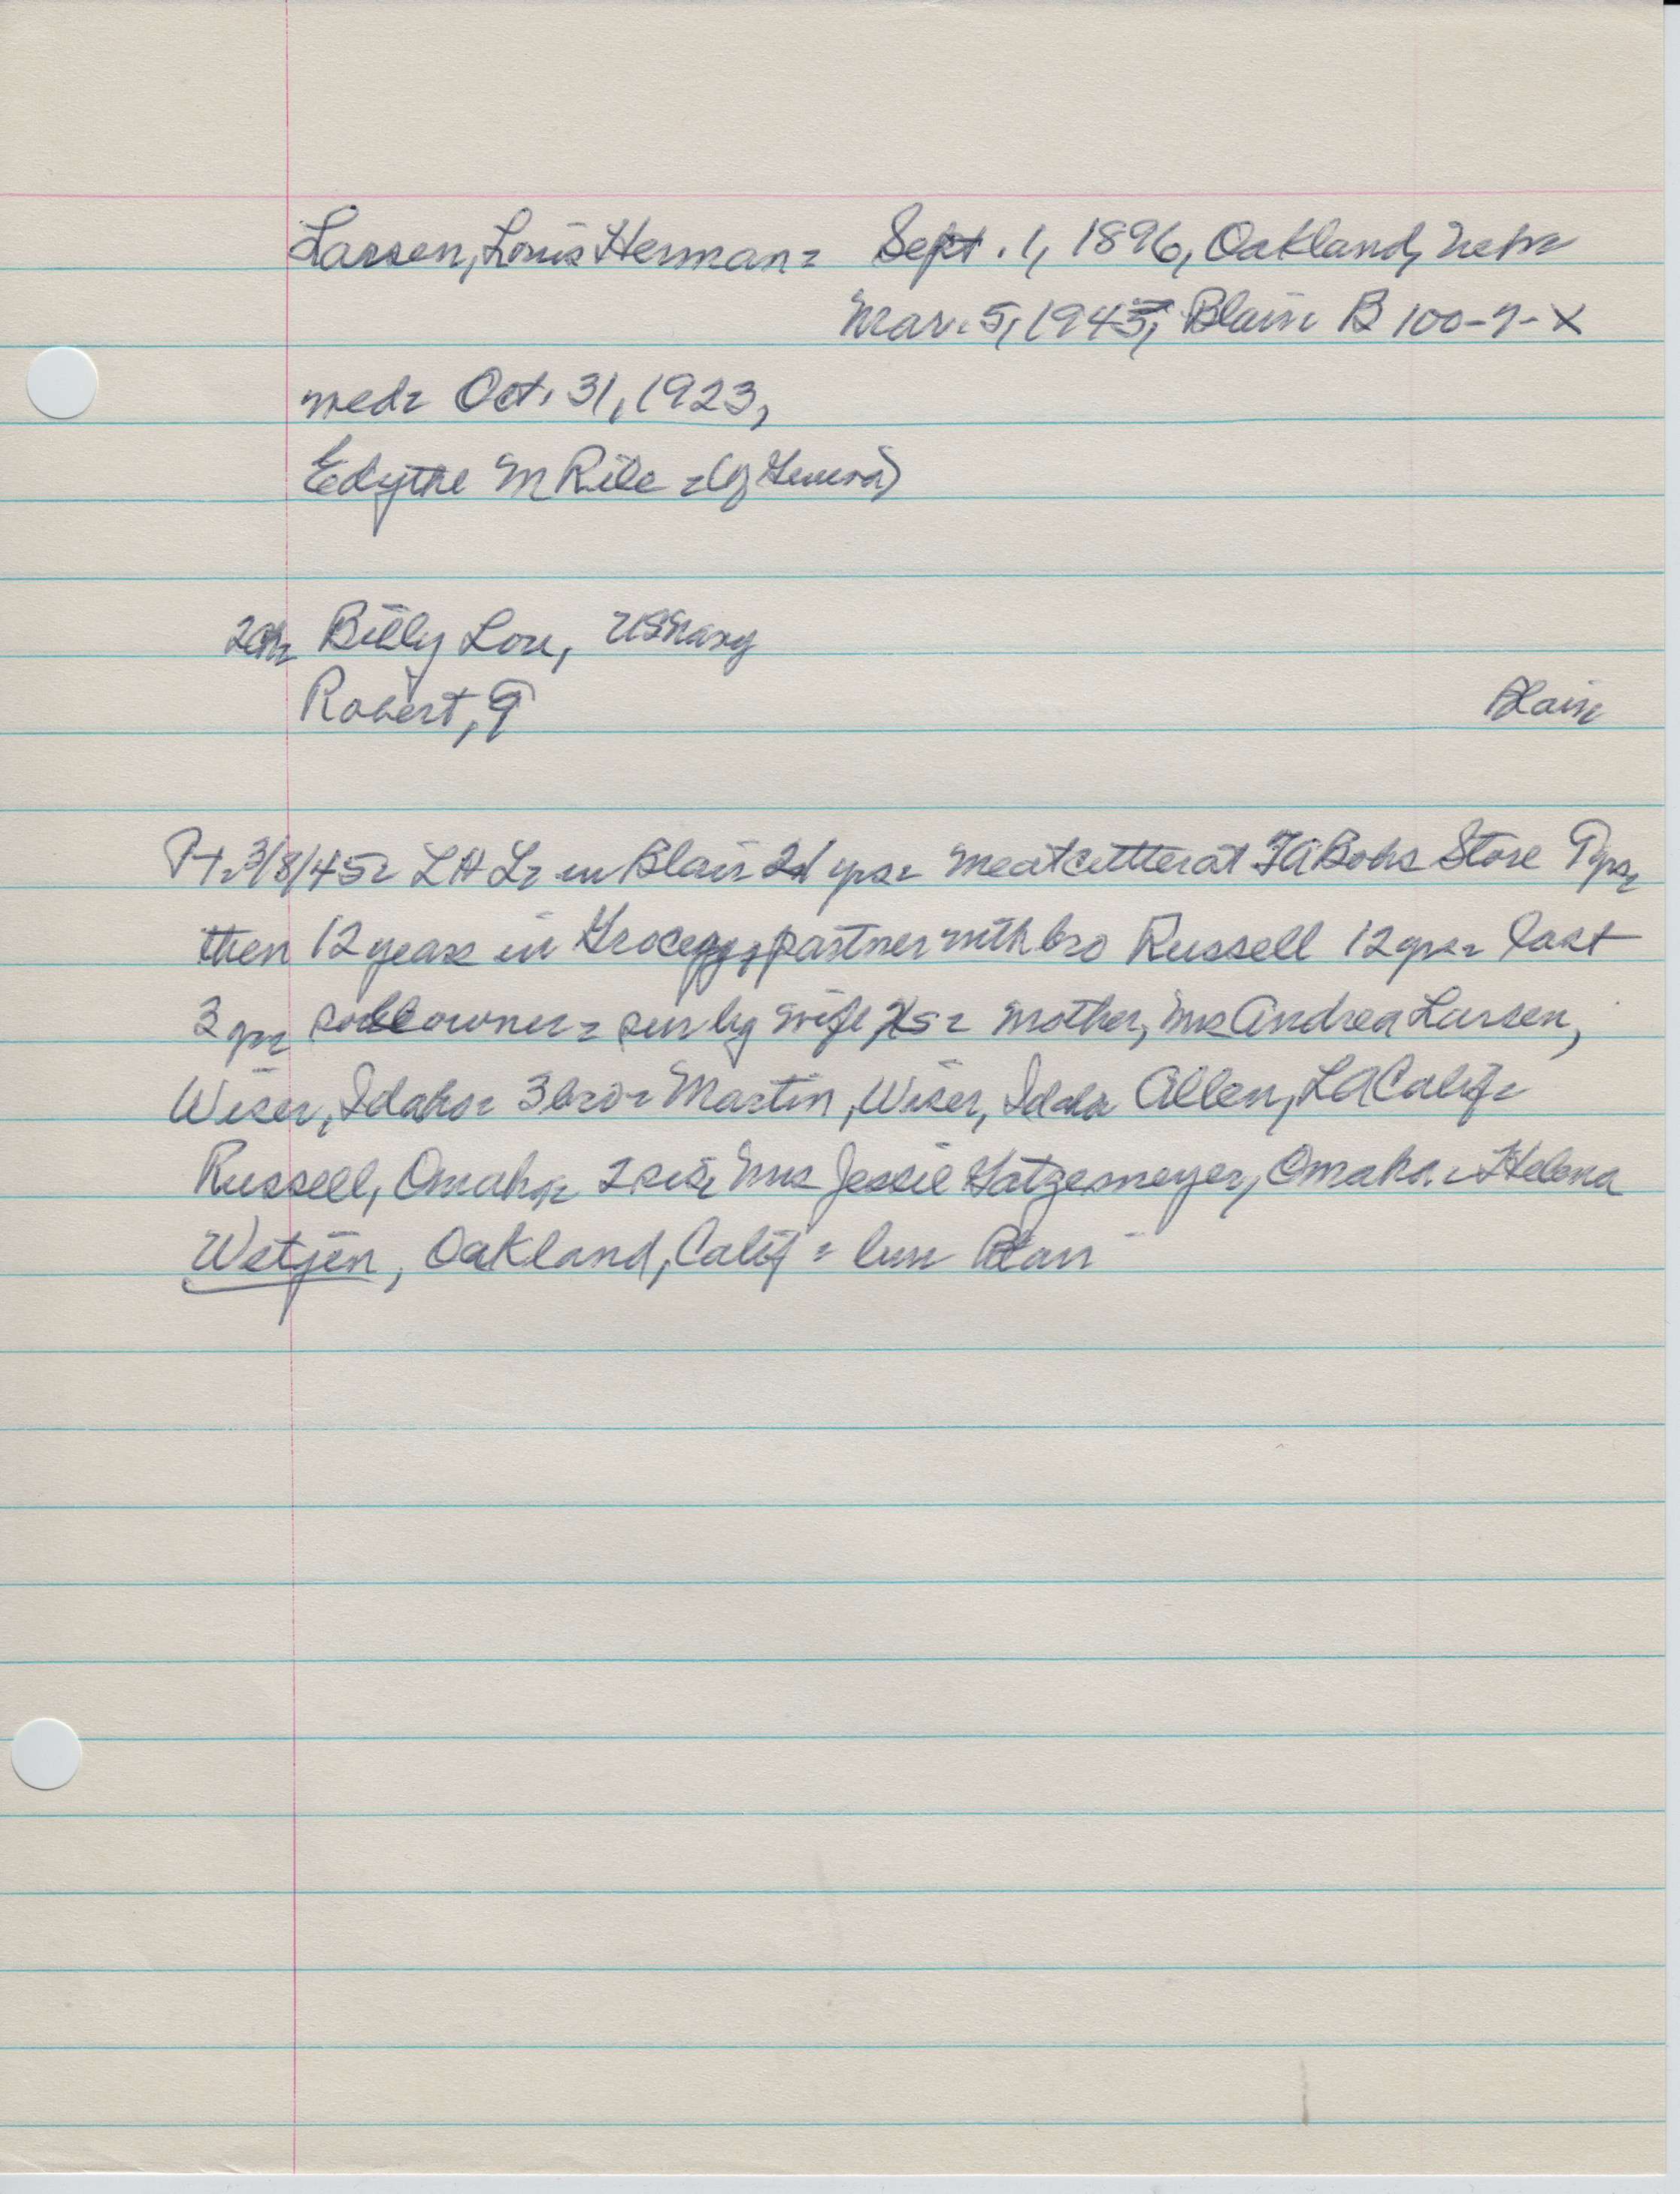 Larsen, Louis Herman = Sept. 1, 1896, Oakland, Nebr
Mar. 5, 1945, Blair B 100-9-X
med= Oct. 31, 1923,
Edythe M Rile = (of Geneva)
2ch= Billy Lou, US Navy
Robert, 9
Blair
Pt. 3/8/45= LHL= in Blair 21 yrs= meatcutter at FA Bohs Store 9 yrs=
then 12 years in Grocery, partner with bro Russell 12 yrs= last
3 yrs sole owner= sur by wife = mother, Mrs Andrea Larsen,
Wiser, Idaho= 3 bro= Martin, Wiser, Idaho Allen, LA Calif=
Russell, Omaha= 2 sis= Mrs Jessie Gatzemeyer, Omaha. = Helena
Wetjen, Oakland, Calif = bur Blair